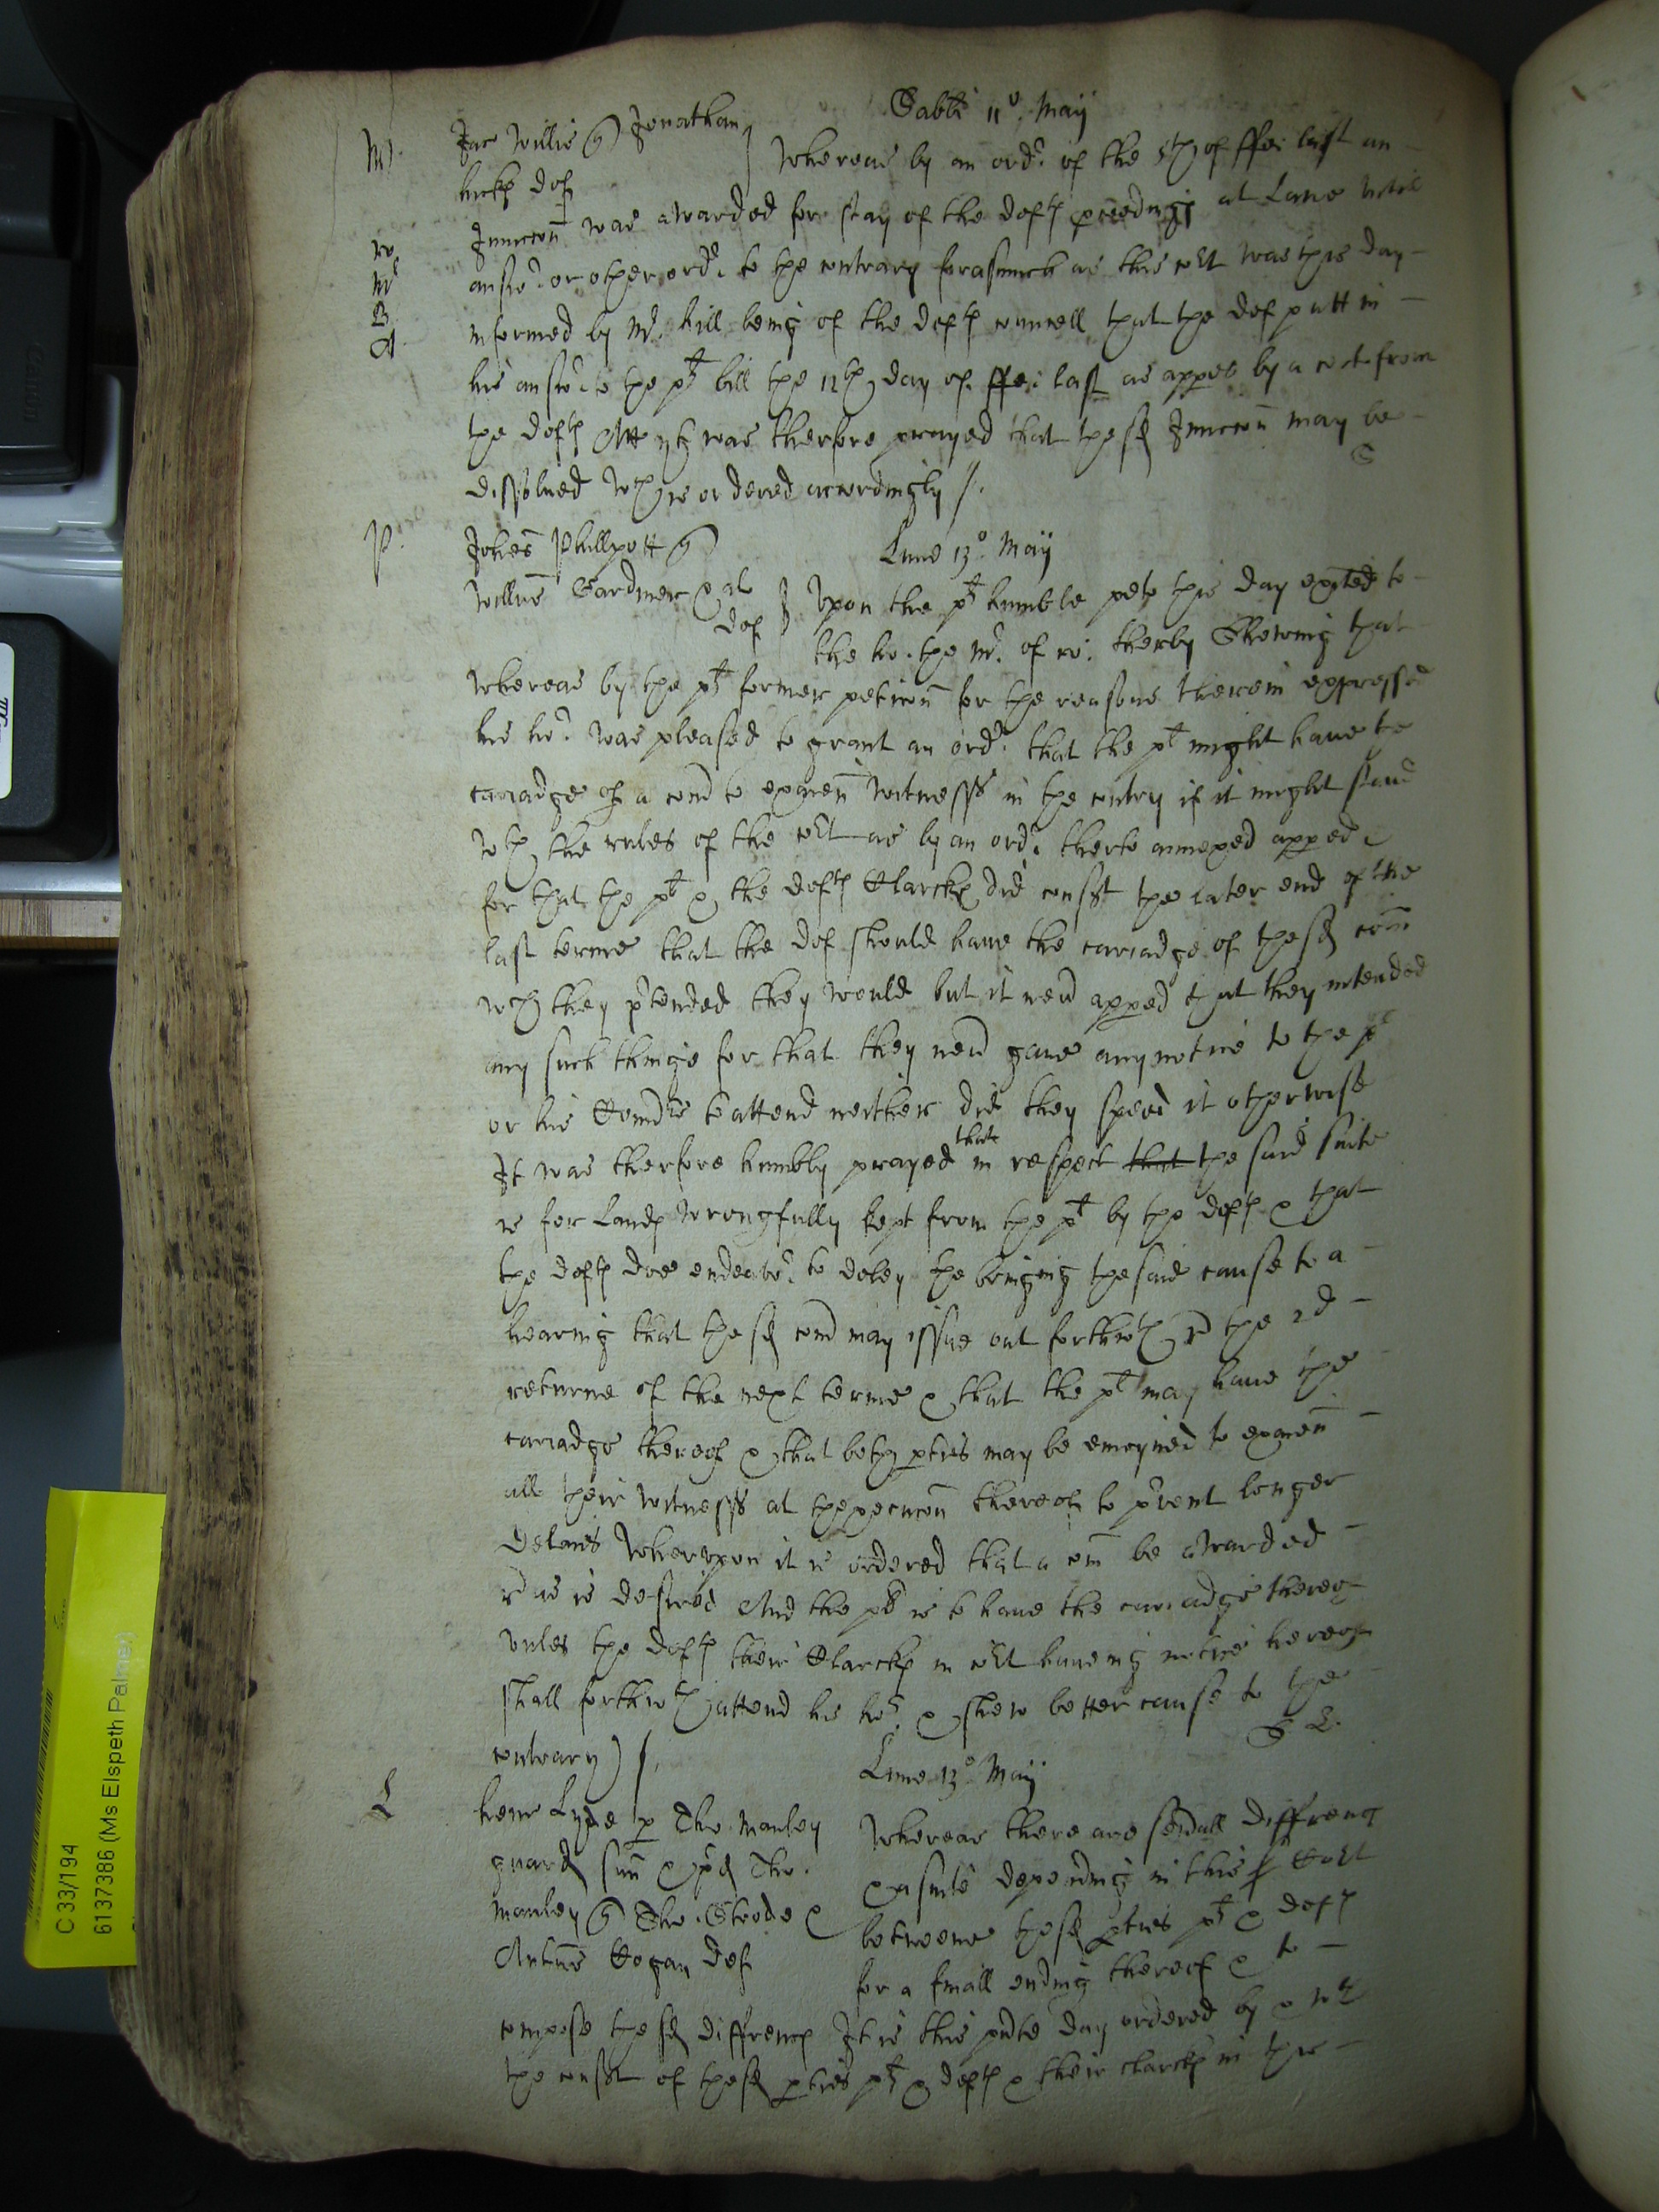 Sabbi 11º May
W. Jac Willis q Jonathan
hickes def Whereas by an ordr. of the 5th of ffe: last an
Iniuccon was awarded for stay of the defts pceedings at Lawe untill
answr. or other ordr. to the contrary forasmuch as this cot was this day
informed by Mr. hill being of the defts councell that the def putt in
his answr. to the plt bill the 12th day of ffe: last as apper by a cert from
the defts Att it was therfore prayed that the sd Iniuccon may be
dissolued wch is ordered accordingly /.
P. Johes Phillpott q
Lune 13º May
Willus Gardiner & al
def
Upon the plt humble peto this day exited to
the ho. the Mr. of ro: therby Shewing that
Whereas by the plt former peticon for the reasons therein expressed
his hor. was pleased to grant an ordr. that the plt might haue the
cariadge of a comd to examen witnesss in the contry if it might stand
wth the rules of the cot as by an ordr. therto annexed apped
for that the plt & the defts Clarckes did consst the later end of the
last terme that the def should haue the cariadge of the sd com
wch they ptended they would but it neu apped that they intended
any such thinge for that they neu gaue any notice to the plt
or his Comdrs to attend neither did they speed it otherwise
It was therfore humbly prayed that in respect that the said suite
is for Landes wrongfully kept from the plt by the defts & that
the defts doe endeavor. to deley the bringing the said cause to a
hearing that the sd comd may issue out forthwth r the 2d
returne of the next terme & that the plt may haue the
cariadge thereof & that both pties may be enioyned to examen
all their witnesss at the execucon thereof to pvent longer
Delaies Wherupon it is ordered that a com be awarded
r as is desired And the plt is to haue the cariadge thereof
unles the defts their Clarckes in cot haueing notice hereof
shall forthwth attend his hor. & shew better cause to the
contrary /.
Lune 13º May
L henr Lyde p Tho. Manley
guard sui & pd Tho.
Manley q Tho. Strode &
Antus Cogan def
Whereas there are seuall differencs
& suits depending in this Cot
betweene these pties plt & defts
for a finall ending thereof & to
compose the sd differences It is this pnte day ordered by & wth
the consst of these pties plt & defts & their clarckes in this
C 33/194
6137386 (Ms Elspeth Palmer)